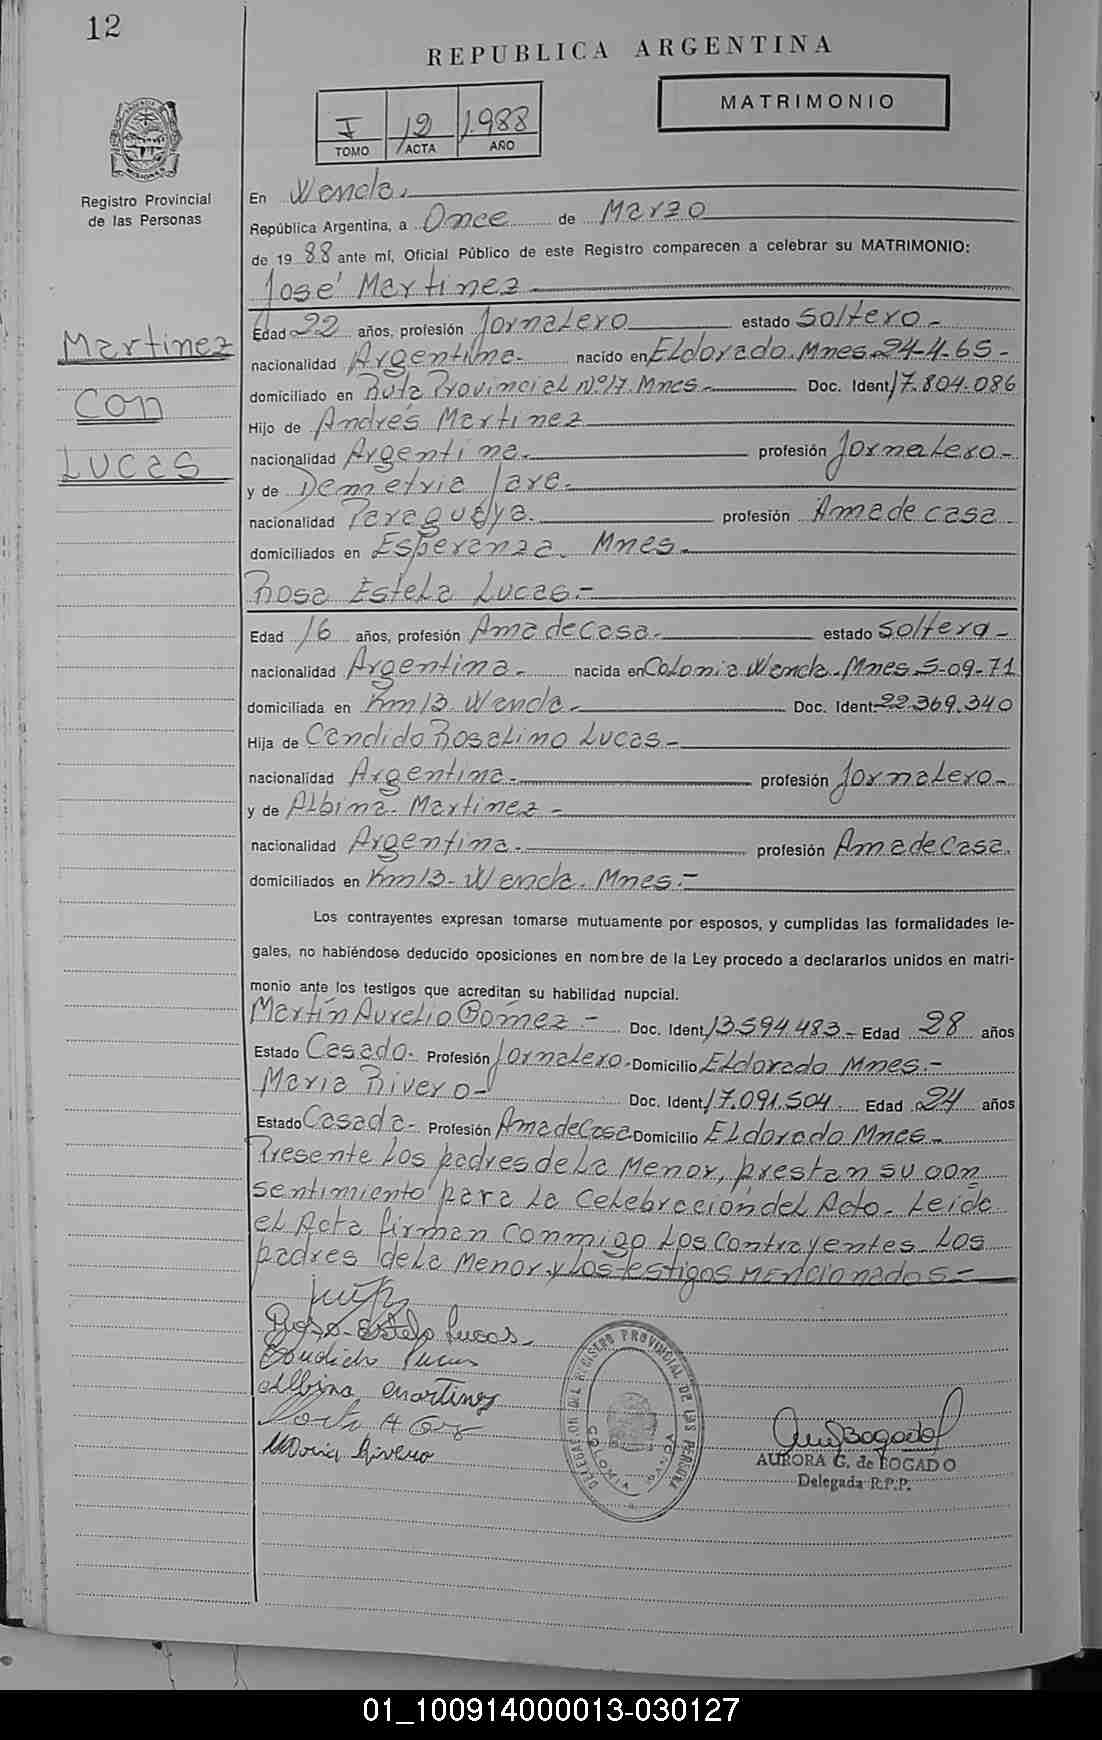 12
REPUBLICA ARGENTINA
MATRIMONIO
I 12 1.988
TOMO ACTA AÑO
Registro Provincial
de las Personas
En Wanda.
República Argentina, a Once de Marzo
de 19 88 ante mí, Oficial Público de este Registro comparecen a celebrar su MATRIMONIO:
José Martinez
Martinez
Con
Lucas
Edad 22 años, profesión Jornalero estado Soltero -
nacionalidad Argentina. nacido en Eldorado. Mnes 24-4-65 -
domiciliado en Ruta Provincial Nº 17. Mnes - Doc. Ident 17.804.086
Hijo de Andrés Martinez
nacionalidad Argentina. profesión Jornalero -
y de Demetria Jara.
nacionalidad Paraguaya. profesión Ama de casa
domiciliados en Esperanza. Mnes.
Rosa Estela Lucas.-
Edad 16 años, profesión Ama de Casa. estado Soltera -
nacionalidad Argentina. nacida en Colonia Wanda. Mnes 5-09-71
domiciliada en Km 13 Wanda. Doc. Ident. 22.369.340
Hija de Candido Rosalino Lucas -
nacionalidad Argentina. profesión Jornalero -
y de Albina Martinez -
nacionalidad Argentina. profesión Ama de Casa.
domiciliados en Km 13 - Wanda. Mnes.-
Los contrayentes expresan tomarse mutuamente por esposos, y cumplidas las formalidades le-
gales, no habiéndose deducido oposiciones en nombre de la Ley procedo a declararlos unidos en matri-
monio ante los testigos que acreditan su habilidad nupcial.
Martín Aurelio Gómez - Doc. Ident 13.594.483 - Edad 28 años
Estado Casado. Profesión Jornalero. Domicilio Eldorado Mnes.-
Maria Rivero - Doc. Ident 17.091.504 Edad 24 años
Estado Casada. Profesión Ama de Casa Domicilio Eldorado Mnes.
Presente Los padres de La Menor, prestan su con
sentimiento para La Celebración del Acto. Leida
el Acta firman Conmigo Los Contrayentes Los
padres de La Menor y Los testigos Mencionados -
Rosa Estela Lucas.
Lucas
Albina Martinez
Maria Rivero
DELEGACION DEL REGISTRO PROVINCIAL DE LAS PERSONAS
AURORA G. de BOGADO
Delegada R.P.P.
01_100914000013-030127